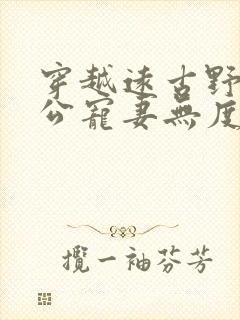 穿越遠古野
公寵妻無度
攬一袖芬芳